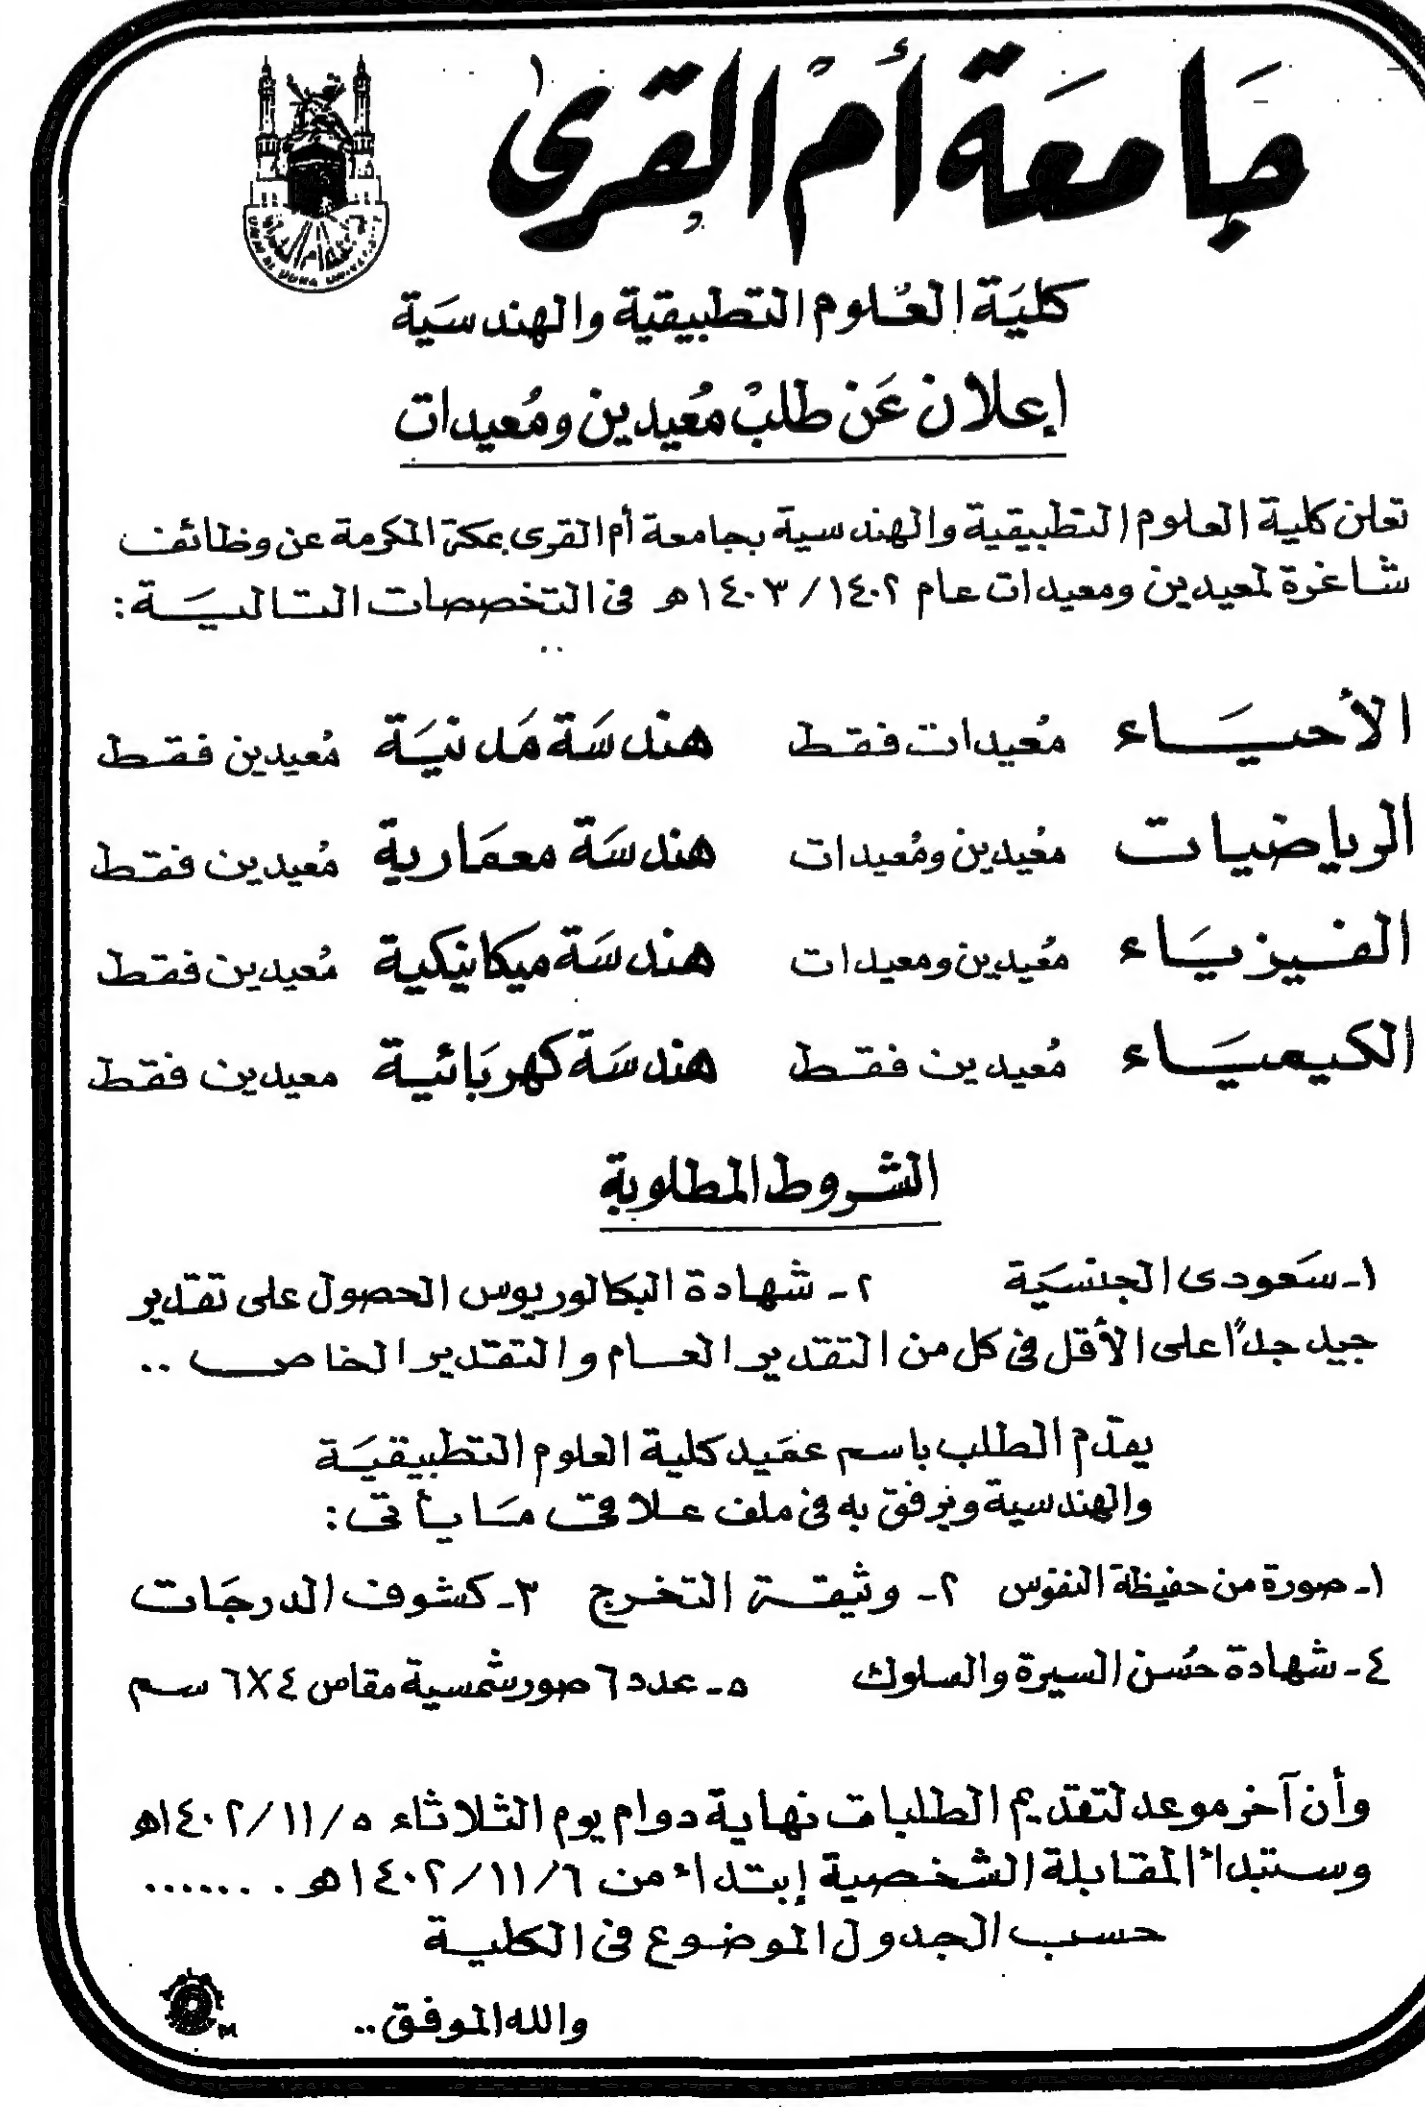 جامعة أم القرى
كلية العلوم التطبيقية والهندسية
إعلان عن طلب معيدين ومعيدات
تعلن كلية العلوم التطبيقية والهندسية بجامعة أم القرى بمكة المكرمة عن وظائف
شاغرة لمعيدين ومعيدات عام ١٤٠٢/١٤٠٣هـ فى التخصصات التالية:
الأحياء معيدات فقط هندسة مدنية معيدين فقط
الرياضيات معيدين ومعيدات هندسة معمارية معيدين فقط
الفيزياء معيدين ومعيدات هندسة ميكانيكية معيدين فقط
الكيمياء معيدين فقط هندسة كهربائية معيدين فقط
الشروط المطلوبة
١- سعودى الجنسية ٢- شهادة البكالوريوس الحصول على تقدير
جيد جداً على الأقل فى كل من التقدير العام والتقدير الخاص ..
يقدم الطلب باسم عميد كلية العلوم التطبيقية
والهندسية ويرفق به فى ملف علاقى ما يأتى:
١- صورة من حفيظة النفوس ٢- وثيقة التخرج ٣- كشوف الدرجات
٤- شهادة حسن السيرة والسلوك ٥- عدد ٦ صور شمسية مقاس ٤×٦ سم
وأن آخر موعد لتقديم الطلبات نهاية دوام يوم الثلاثاء ١٤٠٢/١١/٥هـ
وستبدأ المقابلة الشخصية إبتداء من ١٤٠٢/١١/٦هـ . ......
حسب الجدول الموضوع فى الكلية
والله الموفق ..